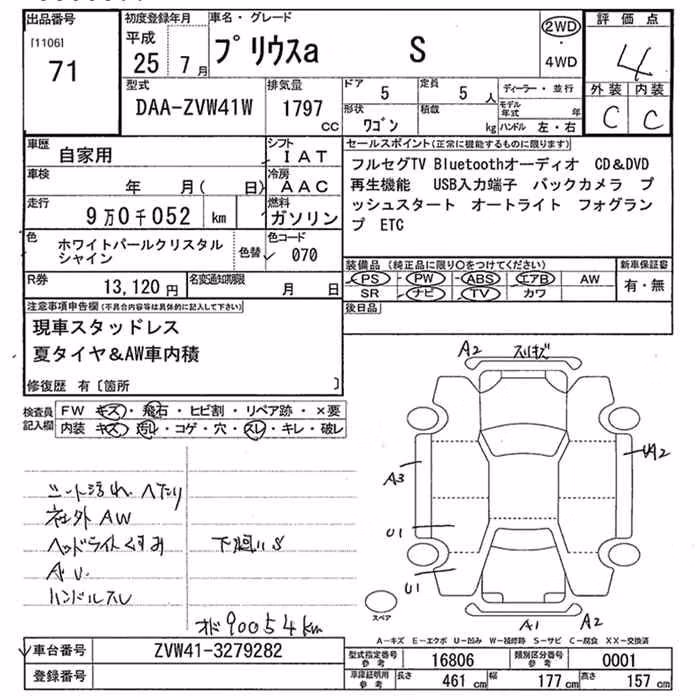 出品番号
[1106]
71
初度登録年月
平成
25年7月
車名・グレード
プリウスa S
2WD
・
4WD
評価点
4
外装 内装
C C
型式
DAA-ZVW41W
排気量
1797
CC
ドア 5
定員 5人
形状 ワゴン
積載 kg
ディーラー・並行
モデル年式 年
ハンドル 左・右
車歴 自家用
シフト IAT
車検 年 月( 日)
冷房 AAC
走行 9万0千052 km
燃料 ガソリン
色 ホワイトパールクリスタル
シャイン
色替
色コード 070
R券 13,120円
名変通知期限 月 日
セールスポイント(正常に機能するものに限ります)
フルセグTV Bluetoothオーディオ CD&DVD
再生機能 USB入力端子 バックカメラ プ
ッシュスタート オートライト フォグラン
プ ETC
装備品(純正品に限り〇をつけてください)
PS PW ABS エアB AW
SR ナビ TV カワ
新車保証書
有・無
後日品
注意事項申告欄(不具合内容等は具体的に記入して下さい)
現車スタッドレス
夏タイヤ&AW車内積
修復歴 有〔箇所 〕
検査員記入欄
FW キズ・飛石・ヒビ割・リペア跡・×要
内装 キズ・汚レ・コゲ・穴・スレ・キレ・破レ
シート汚れ へたり
社外AW
ヘッドライトくすみ
下廻りS
A U.
ハンドルスレ
オド90054km
A2
A3
UA2
U1
U1
A1
A2
スペア
A-キズ E-エクボ U-凹み W-補修跡 S-サビ C-腐食 XX-交換済
車台番号 ZVW41-3279282
登録番号
型式指定番号 参考 16806
類別区分番号 参考 0001
車庫証明用 参考 長さ 461cm 幅 177cm 高さ 157cm